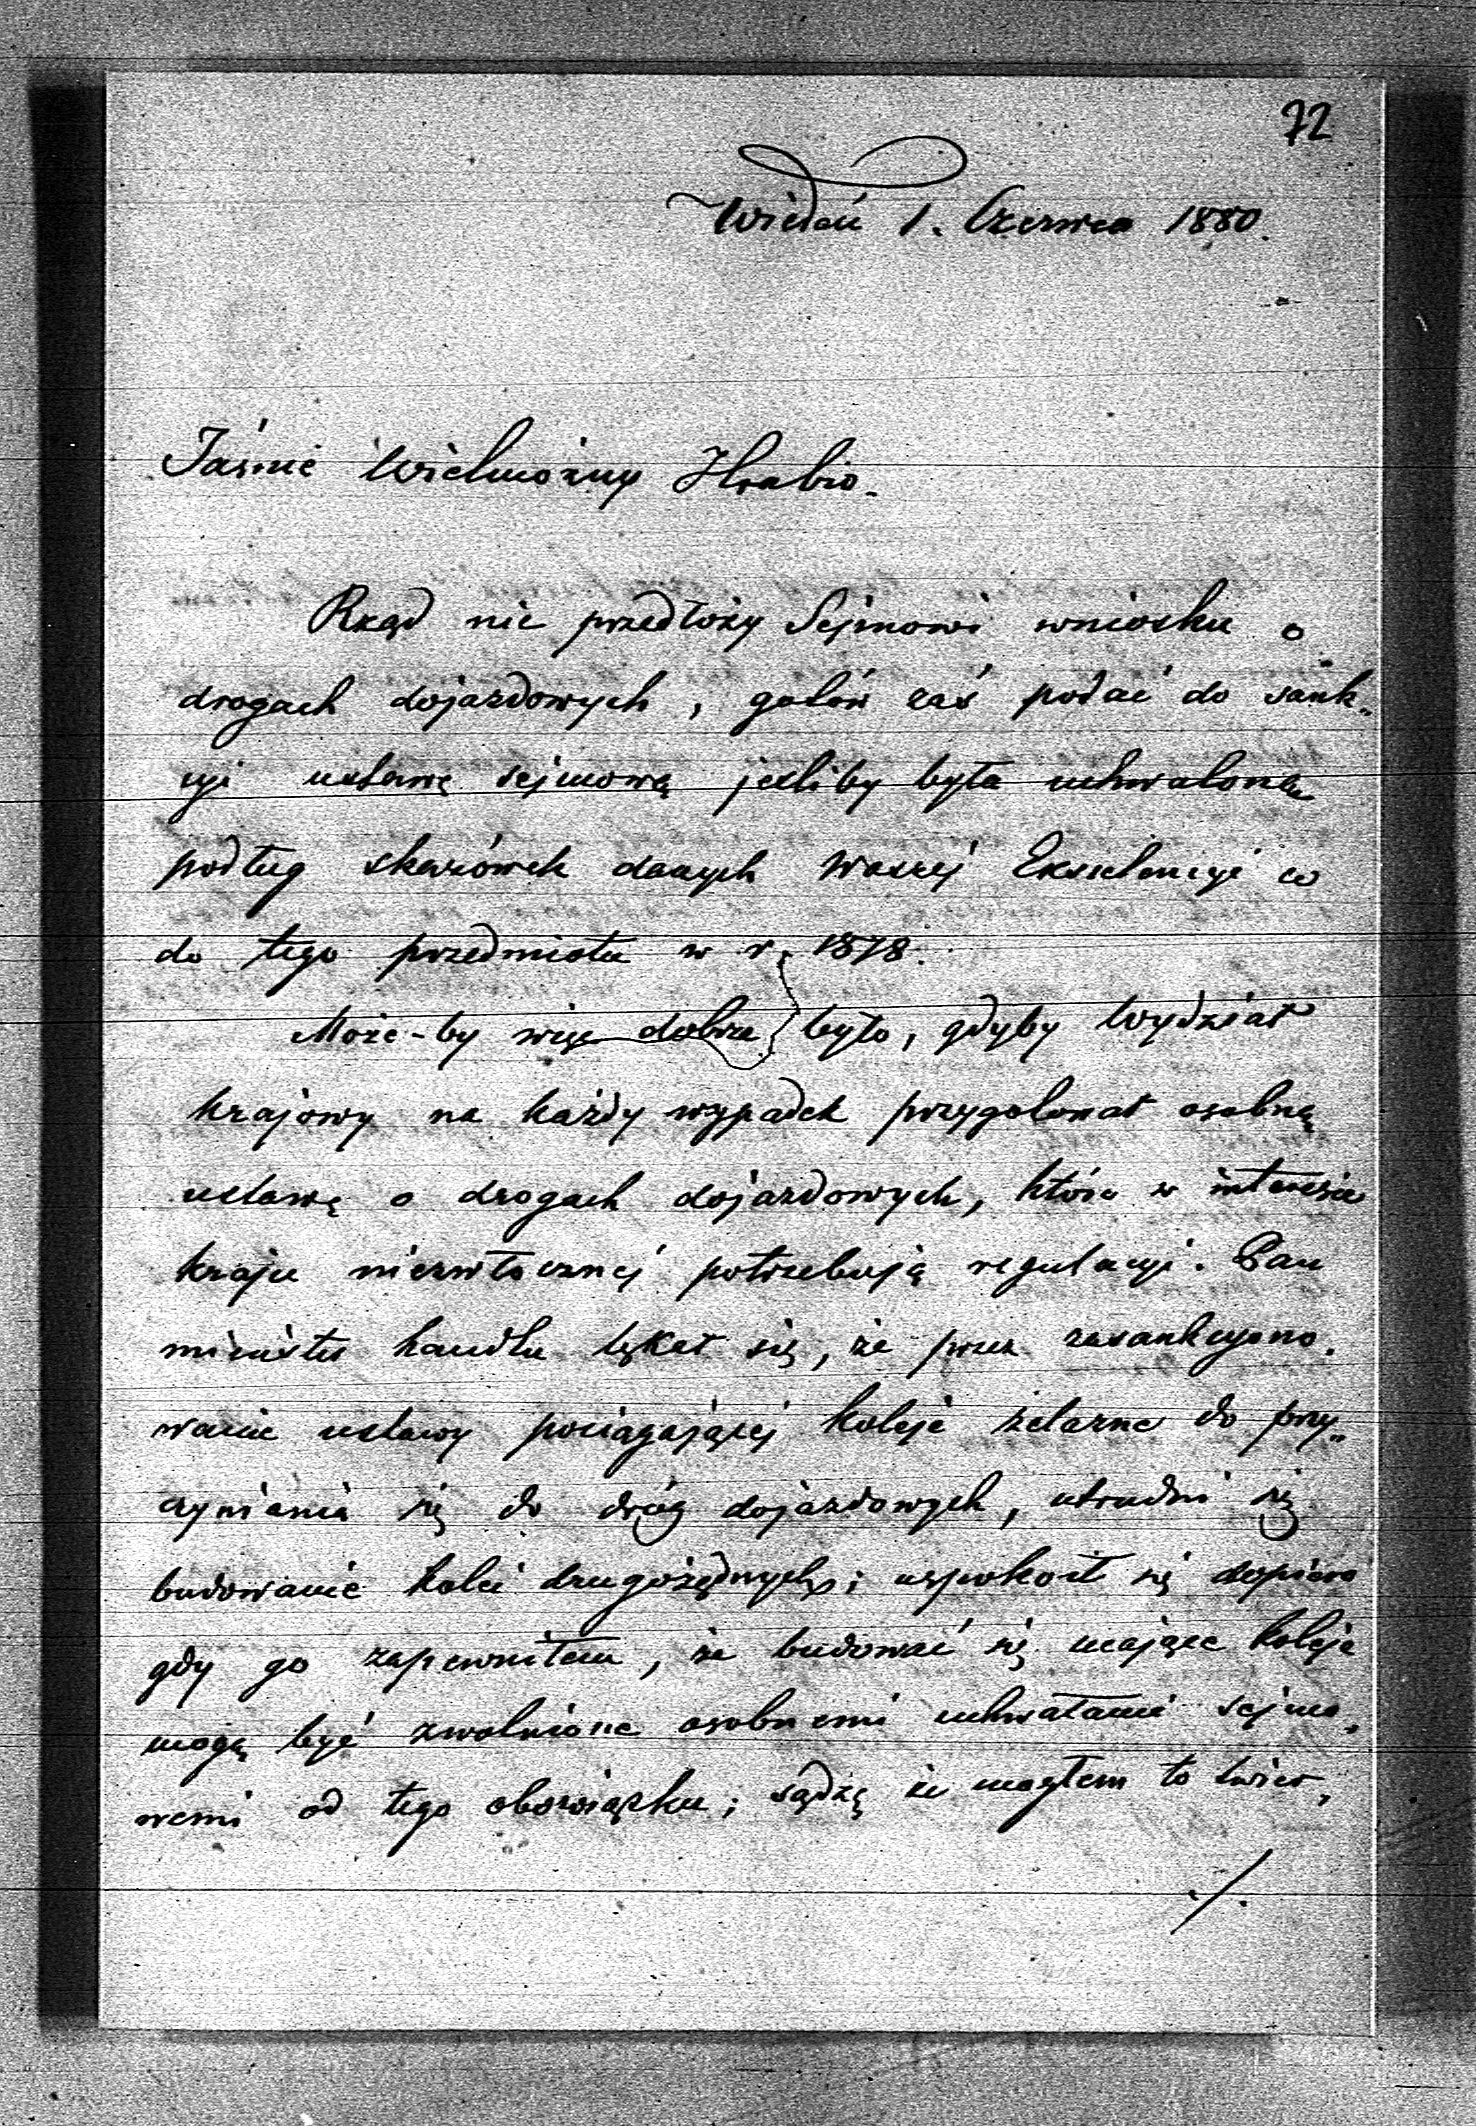 72
Wiedeń 1. Czerwca 1880.
Jaśnie Wielmożny Hrabio.
Rząd nie przedłoży Sejmowi wniosku o
drogach dojazdowych, gotów zaś podać do sank-
cyi ustawę sejmową jeśliby była uchwaloną
podług skazówek danych Waszej Ekscelencyi co
do tego przedmiotu w r. 1878.
Może-by więc dobrze było, gdyby Wydział
krajowy na każdy wypadek przygotował osobną
ustawę o drogach dojazdowych, które w interesie
kraju niezwłocznej potrzebują regulacyi. Pan
minister handlu lękał się, że przez zasankcyono-
wanie ustawy pociągającej koleje żelazne do przy-
czyniania się do dróg dojazdowych, utrudni się
budowanie kolei drugorzędnych; uspokoił się dopiero
gdy go zapewniłem, że budować się mające koleje
mogą być zwolnione osobnemi uchwałami sejmo-
wemi od tego obowiązku; sądzę że mogłem to twier-
./.